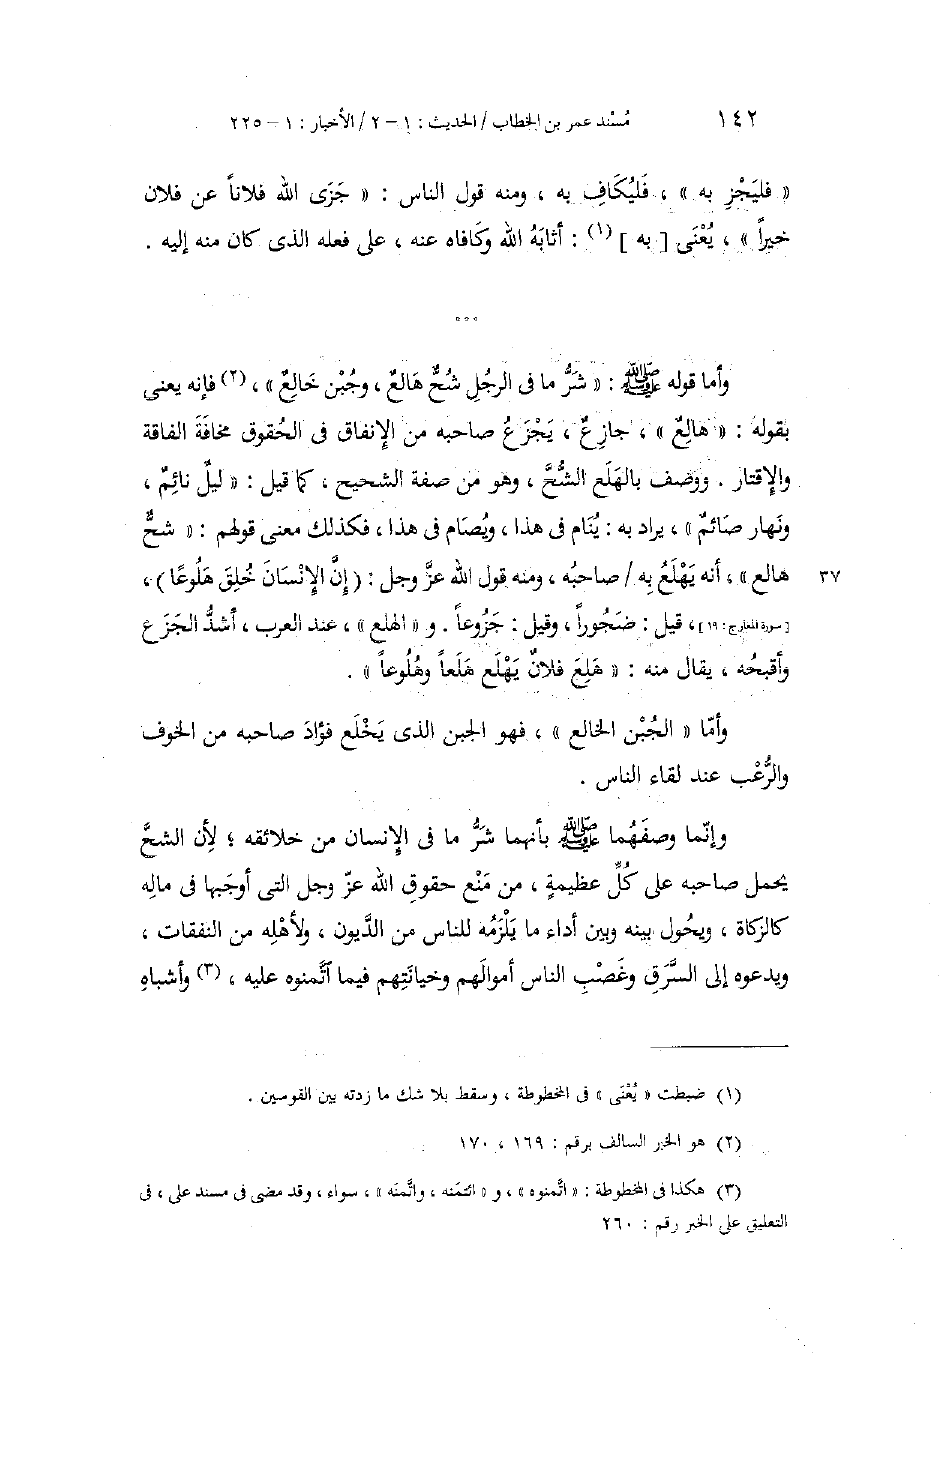 ١٤٢ مُسْند عمر بن الخطاب / الحديث : ١ – ٢ / الأخبار : ١ – ٢٢٥
« فليَجْزِ به » ، فَليُكَافِ به ، ومنه قول الناس : « جَزَى الله فلاناً عن فلان
خيراً » ، يُعْنَى [ به ] (١) : أثابَهُ الله وكَافاه عنه ، على فعله الذى كان منه إليه .
***
وأما قوله ﷺ : « شَرُّ ما فى الرجُلِ شُحٌّ هَالِعٌ ، وجُبْن خَالِعٌ » ، (٢) فإنه يعنى
بقوله : « هَالِعٌ » ، جازِعٌ ، يَجْزَعُ صاحبه من الإنفاق فى الحُقوق مخافَةَ الفاقة
والإقتار . ووَصَف بالهَلَع الشُّحَّ ، وهو من صفة الشحيح ، كما قيل : « ليلٌ نائِمٌ ،
ونَهار صَائمٌ » ، يراد به : يُنَام فى هذا ، ويُصَام فى هذا ، فكذلك معنى قولهم : « شحٌّ
هالع » ، أنه يَهْلَعُ بِه / صاحبُه ، ومنه قول الله عزَّ وجل : ( إِنَّ الإِنْسَانَ خُلِقَ هَلُوعًا ) ، ٣٧
[ سورة المعارج : ١٩ ] ، قيل : ضَجُوراً ، وقيل : جَزُوعاً . و « الهلع » ، عند العرب ، أشدُّ الجَزَع
وأقبحُه ، يقال منه : « هَلِعَ فلانٌ يَهْلَع هَلَعاً وهُلُوعاً » .
وأمّا « الجُبْن الخالع » ، فهو الجبن الذى يَخْلَع فؤادَ صاحبه من الخوف
والرُّعْب عند لقاء الناس .
وإنّما وصفَهُما ﷺ بأنهما شَرُّ ما فى الإنسان من خلائقه ؛ لأِن الشحَّ
يحمل صاحبه على كُلِّ عظيمةٍ ، من مَنْع حقوقِ الله عزّ وجل التى أوجَبها فى مالِه
كالزكاة ، ويحُول بينه وبين أداء ما يَلْزَمُه للناس من الدَّيون ، ولأهْلِه من النفقات ،
ويدعوه إلى السَّرَقِ وغَصْبِ الناس أموالَهم وخيانَتِهم فيما ٱتَّمنوه عليه ، (٣) وأشباهِ
(١) ضبطت « يُعْنَى » فى المخطوطة ، وسقط بلا شك ما زدته بين القوسين .
(٢) هو الخبر السالف برقم : ١٦٩ ، ١٧٠
(٣) هكذا فى المخطوطة : « اتَّمنوه » ، و « ائتمَنه ، واتَّمنَه » ، سواء ، وقد مضى فى مسند على ، فى
التعليق على الخبر رقم : ٢٦٠